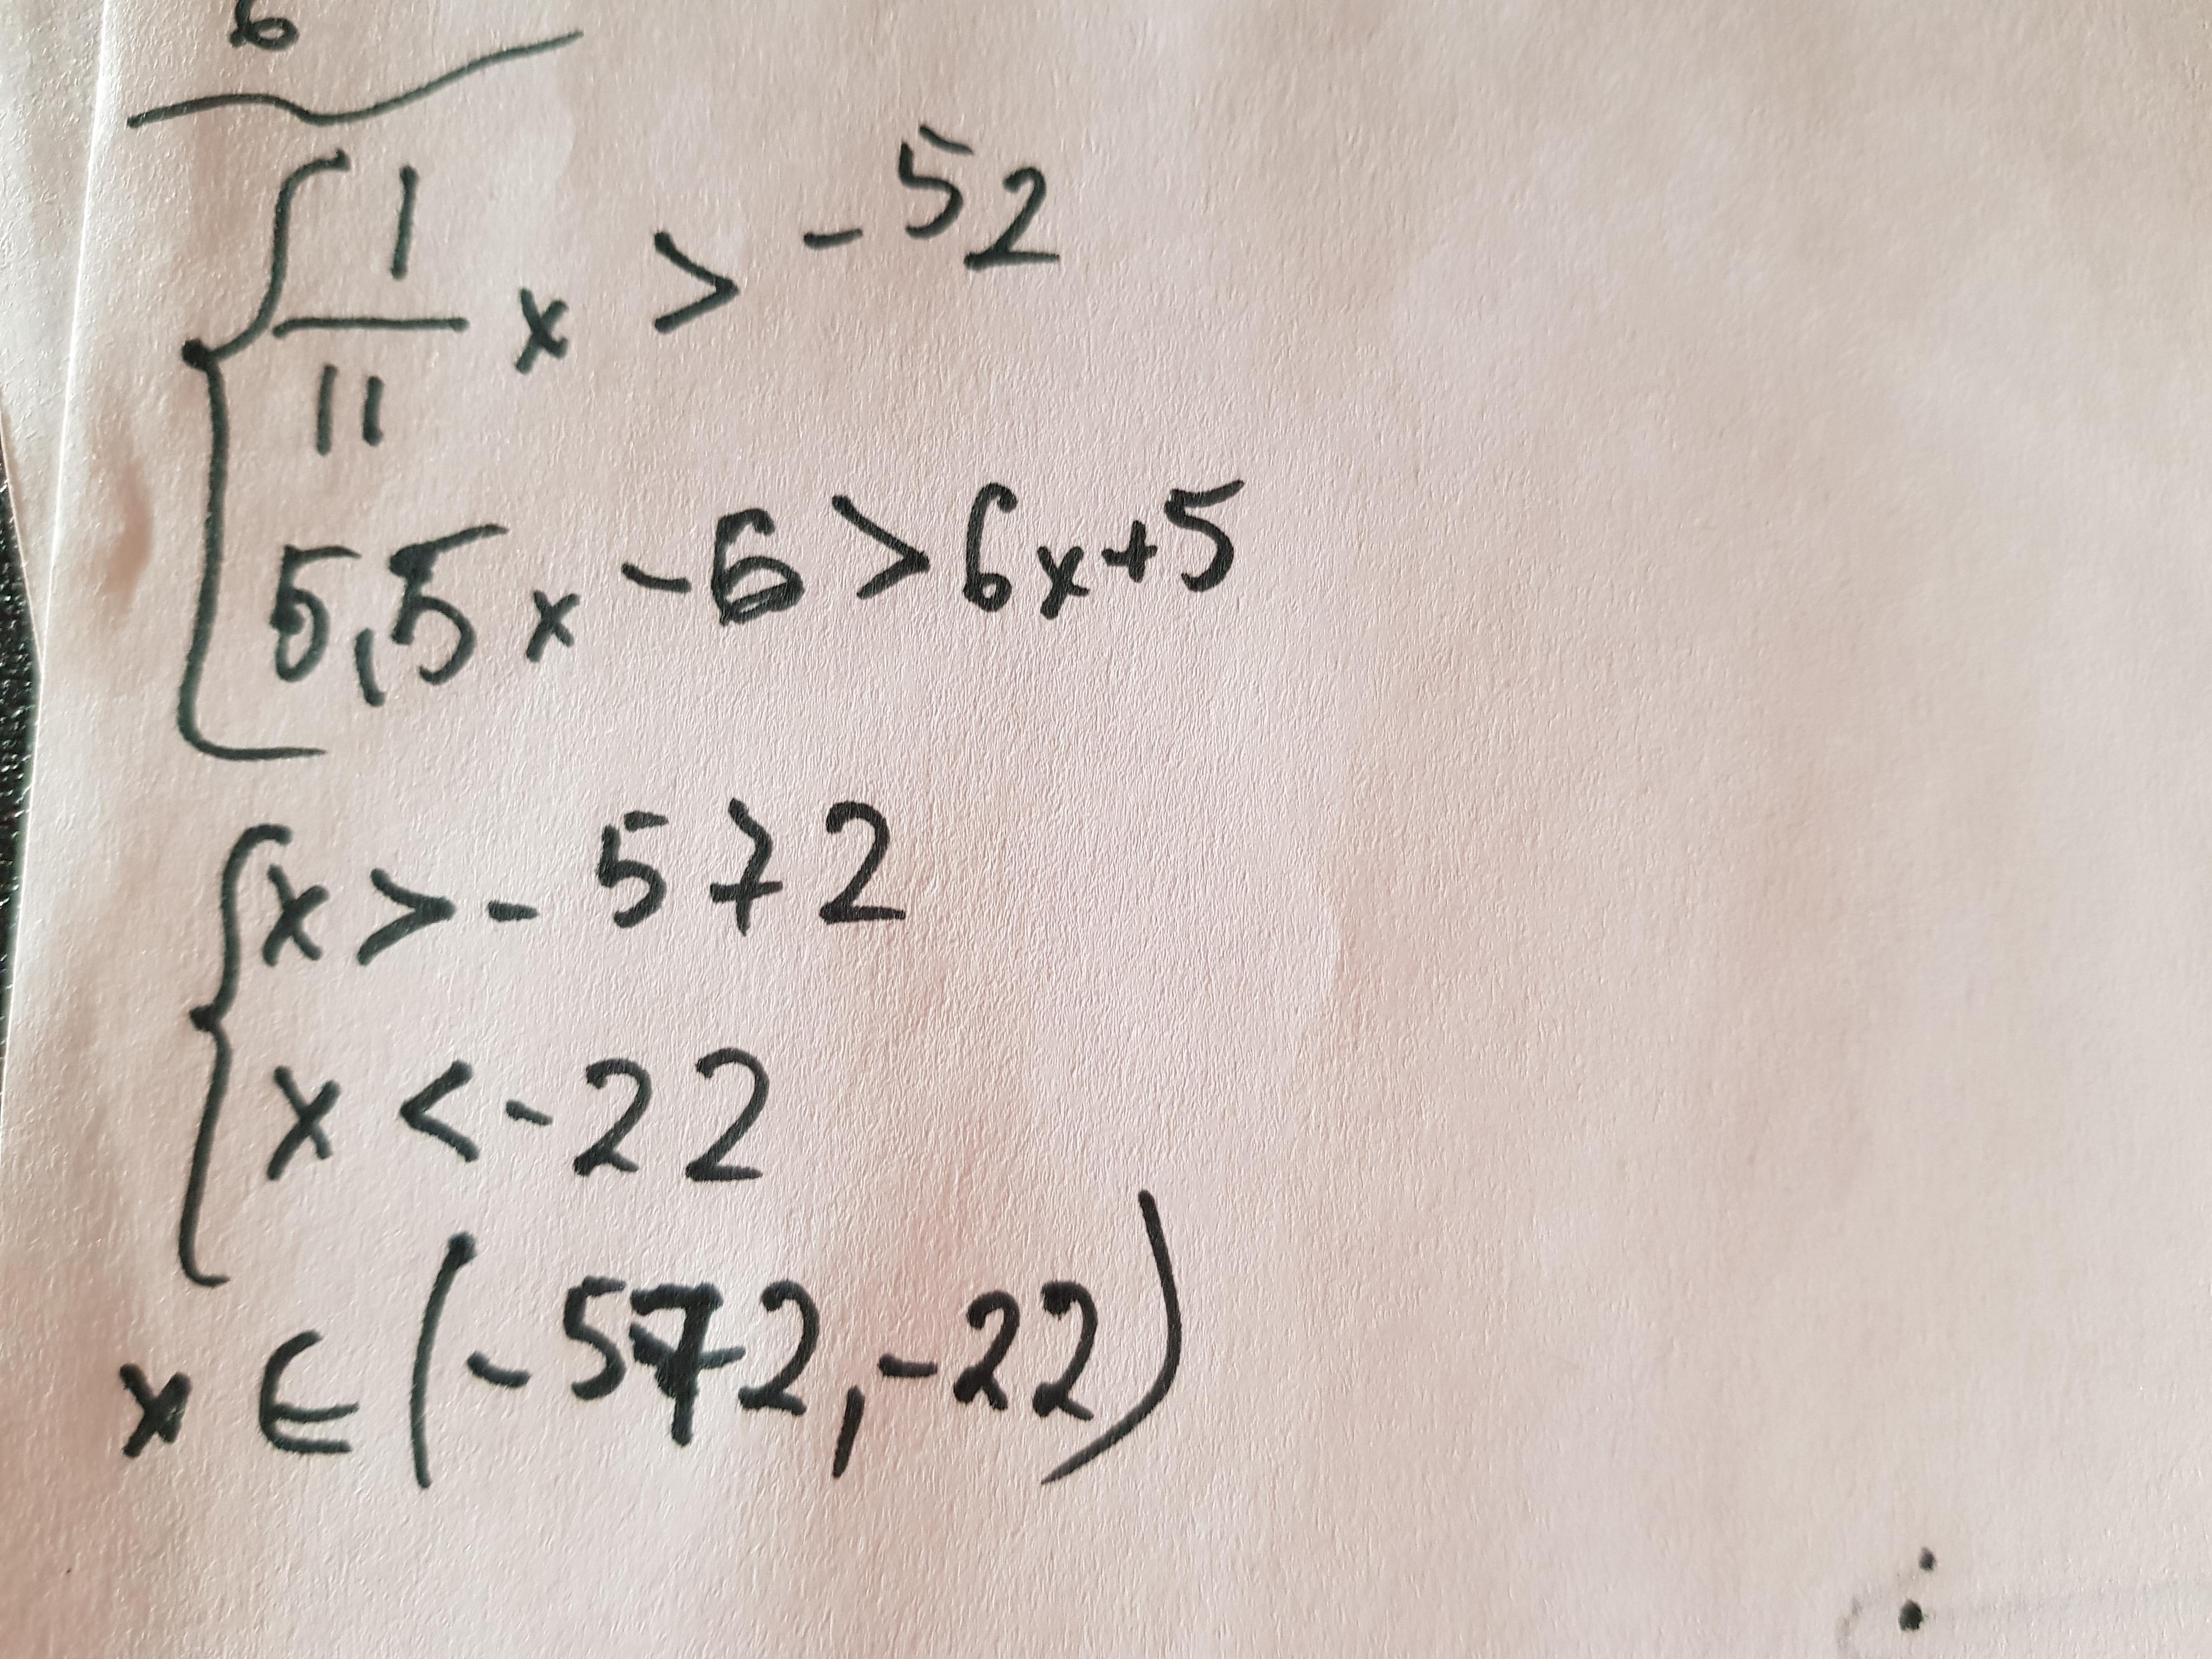 6
1/11 x > -52
5,5x -6 > 6x+5
x > -572
x < -22
x ∈ (-572, -22)